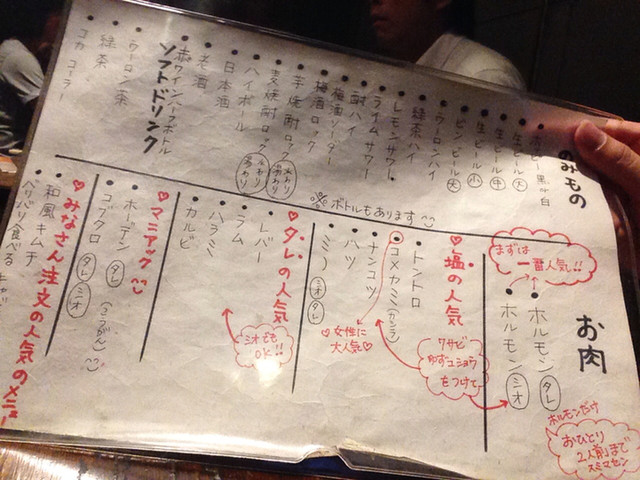 のみもの
ホッピー 黒or白
生ビール 大
生ビール 中
生ビール 小
ビンビール 大
ウーロンハイ
緑茶ハイ
レモンサワー
ライムサワー
酎ハイ
梅酒ソーダー
梅酒ロック
芋焼酎ロック 水わり お湯わり
麦焼酎ロック 水わり お湯わり
ハイボール
日本酒
老酒
赤ワインハーフボトル
※ボトルもあります
ソフトドリンク
ウーロン茶
緑茶
コカコーラー
お肉
ホルモンだけ
おひとり
2人前まで
スミマセン
まずは
一番人気!!
ホルモン タレ
ホルモン シオ
塩の人気
ワサビ
ゆずコショウ
をつけて
トントロ
コメカミ(カシラ)
女性に
大人気
ナンコツ
ハツ
ミノ シオ タレ
タレの人気
シオでも
OK!!
レバー
ラム
ハラミ
カルビ
マニアック
ホーデン タレ (こうがん)
コブクロ タレ シオ
みなさん注文の人気のメニュー
和風キムチ
バリバリ食べる